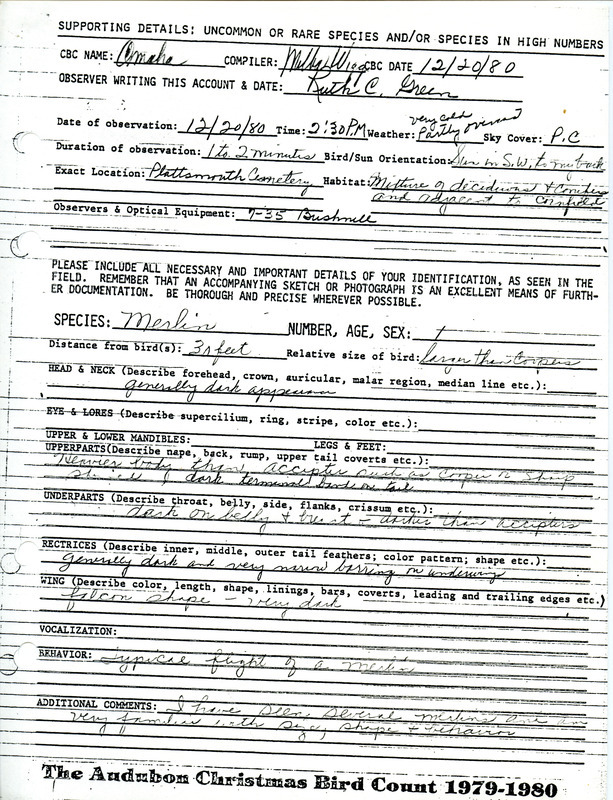 SUPPORTING DETAILS: UNCOMMON OR RARE SPECIES AND/OR SPECIES IN HIGH NUMBERS
CBC NAME: Omaha COMPILER: Melba Wigg CBC DATE 12/20/80
OBSERVER WRITING THIS ACCOUNT & DATE: Ruth C. Green
very cold
Date of observation: 12/20/80 Time: 2:30PM Weather: Partly overcast Sky Cover: P.C
Duration of observation: 1 to 2 minutes Bird/Sun Orientation: Sun in S.W. to my back
Exact Location: Plattsmouth Cemetery Habitat: Mixture of deciduous & Conifers
and adjacent to Cornfield
Observers & Optical Equipment: 7-35 Bushnell
PLEASE INCLUDE ALL NECESSARY AND IMPORTANT DETAILS OF YOUR IDENTIFICATION, AS SEEN IN THE
FIELD. REMEMBER THAT AN ACCOMPANYING SKETCH OR PHOTOGRAPH IS AN EXCELLENT MEANS OF FURTH-
ER DOCUMENTATION. BE THOROUGH AND PRECISE WHEREVER POSSIBLE.
SPECIES: Merlin NUMBER, AGE, SEX: 1
Distance from bird(s): feet Relative size of bird: larger than Coopers
HEAD & NECK (Describe forehead, crown, auricular, malar region, median line etc.):
generally dark appearance
EYE & LORES (Describe supercilium, ring, stripe, color etc.):
UPPER & LOWER MANDIBLES: LEGS & FEET:
UPPERPARTS(Describe nape, back, rump, upper tail coverts etc.):
Heavier body than accipter such as Cooper or Sharp
dark terminal band on tail
UNDERPARTS (Describe throat, belly, side, flanks, crissum etc.):
dark on belly & breast - darker than accipters
RECTRICES (Describe inner, middle, outer tail feathers; color pattern; shape etc.):
Generally dark and very narrow barring on underwing
WING (Describe color, length, shape, linings, bars, coverts, leading and trailing edges etc.)
falcon shape - very dark
VOCALIZATION:
BEHAVIOR: typical flight of a merlin
ADDITIONAL COMMENTS: I have seen several merlins and am
very familiar with size, shape & behavior
The Audubon Christmas Bird Count 1979-1980